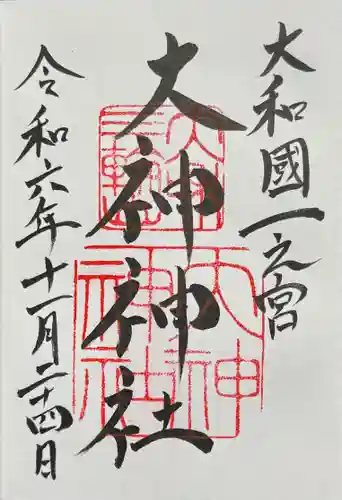 大和國一之宮
大神神社
令和六年十一月二十四日
大神神社